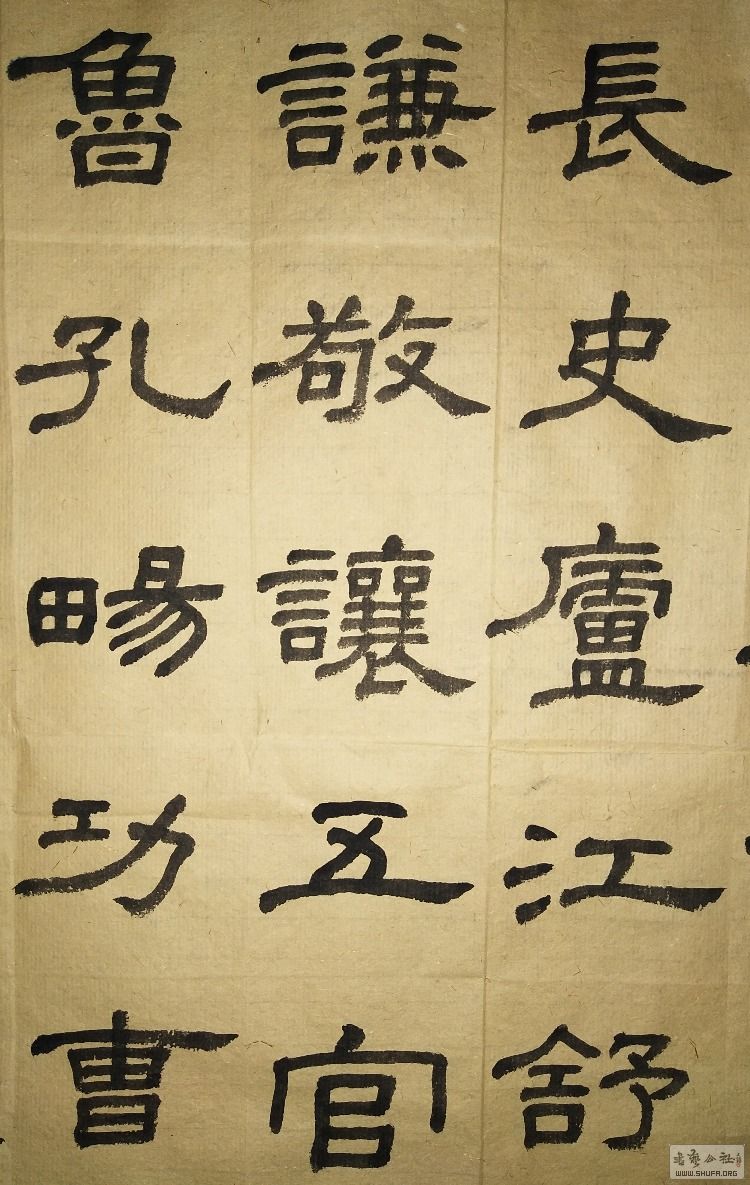 長史廬江舒
謙敬讓五官
魯孔畼功曹
书艺公社
WWW.SHUFA.ORG